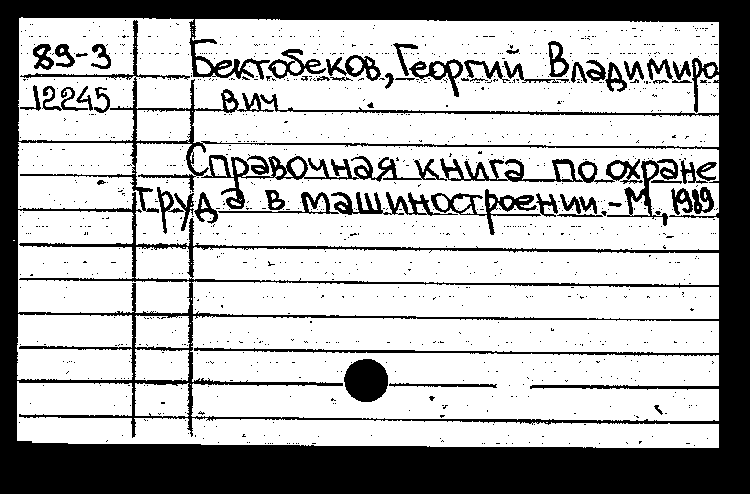 89-3 Бектобеков, Георгий Владимиро
12245 вич
Справочная книга по охране
труда в машиностроении.-М., 1989.